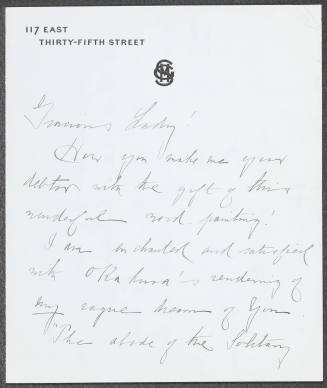 117 EAST
THIRTY-FIFTH STREET
Gracious Lady!
How you make me your
debtor with the gift of this
wonderful word painting!
I am enchanted and satisfied
with Okakura's rendering of
my vague dream of You.
"The abode of the Solitary